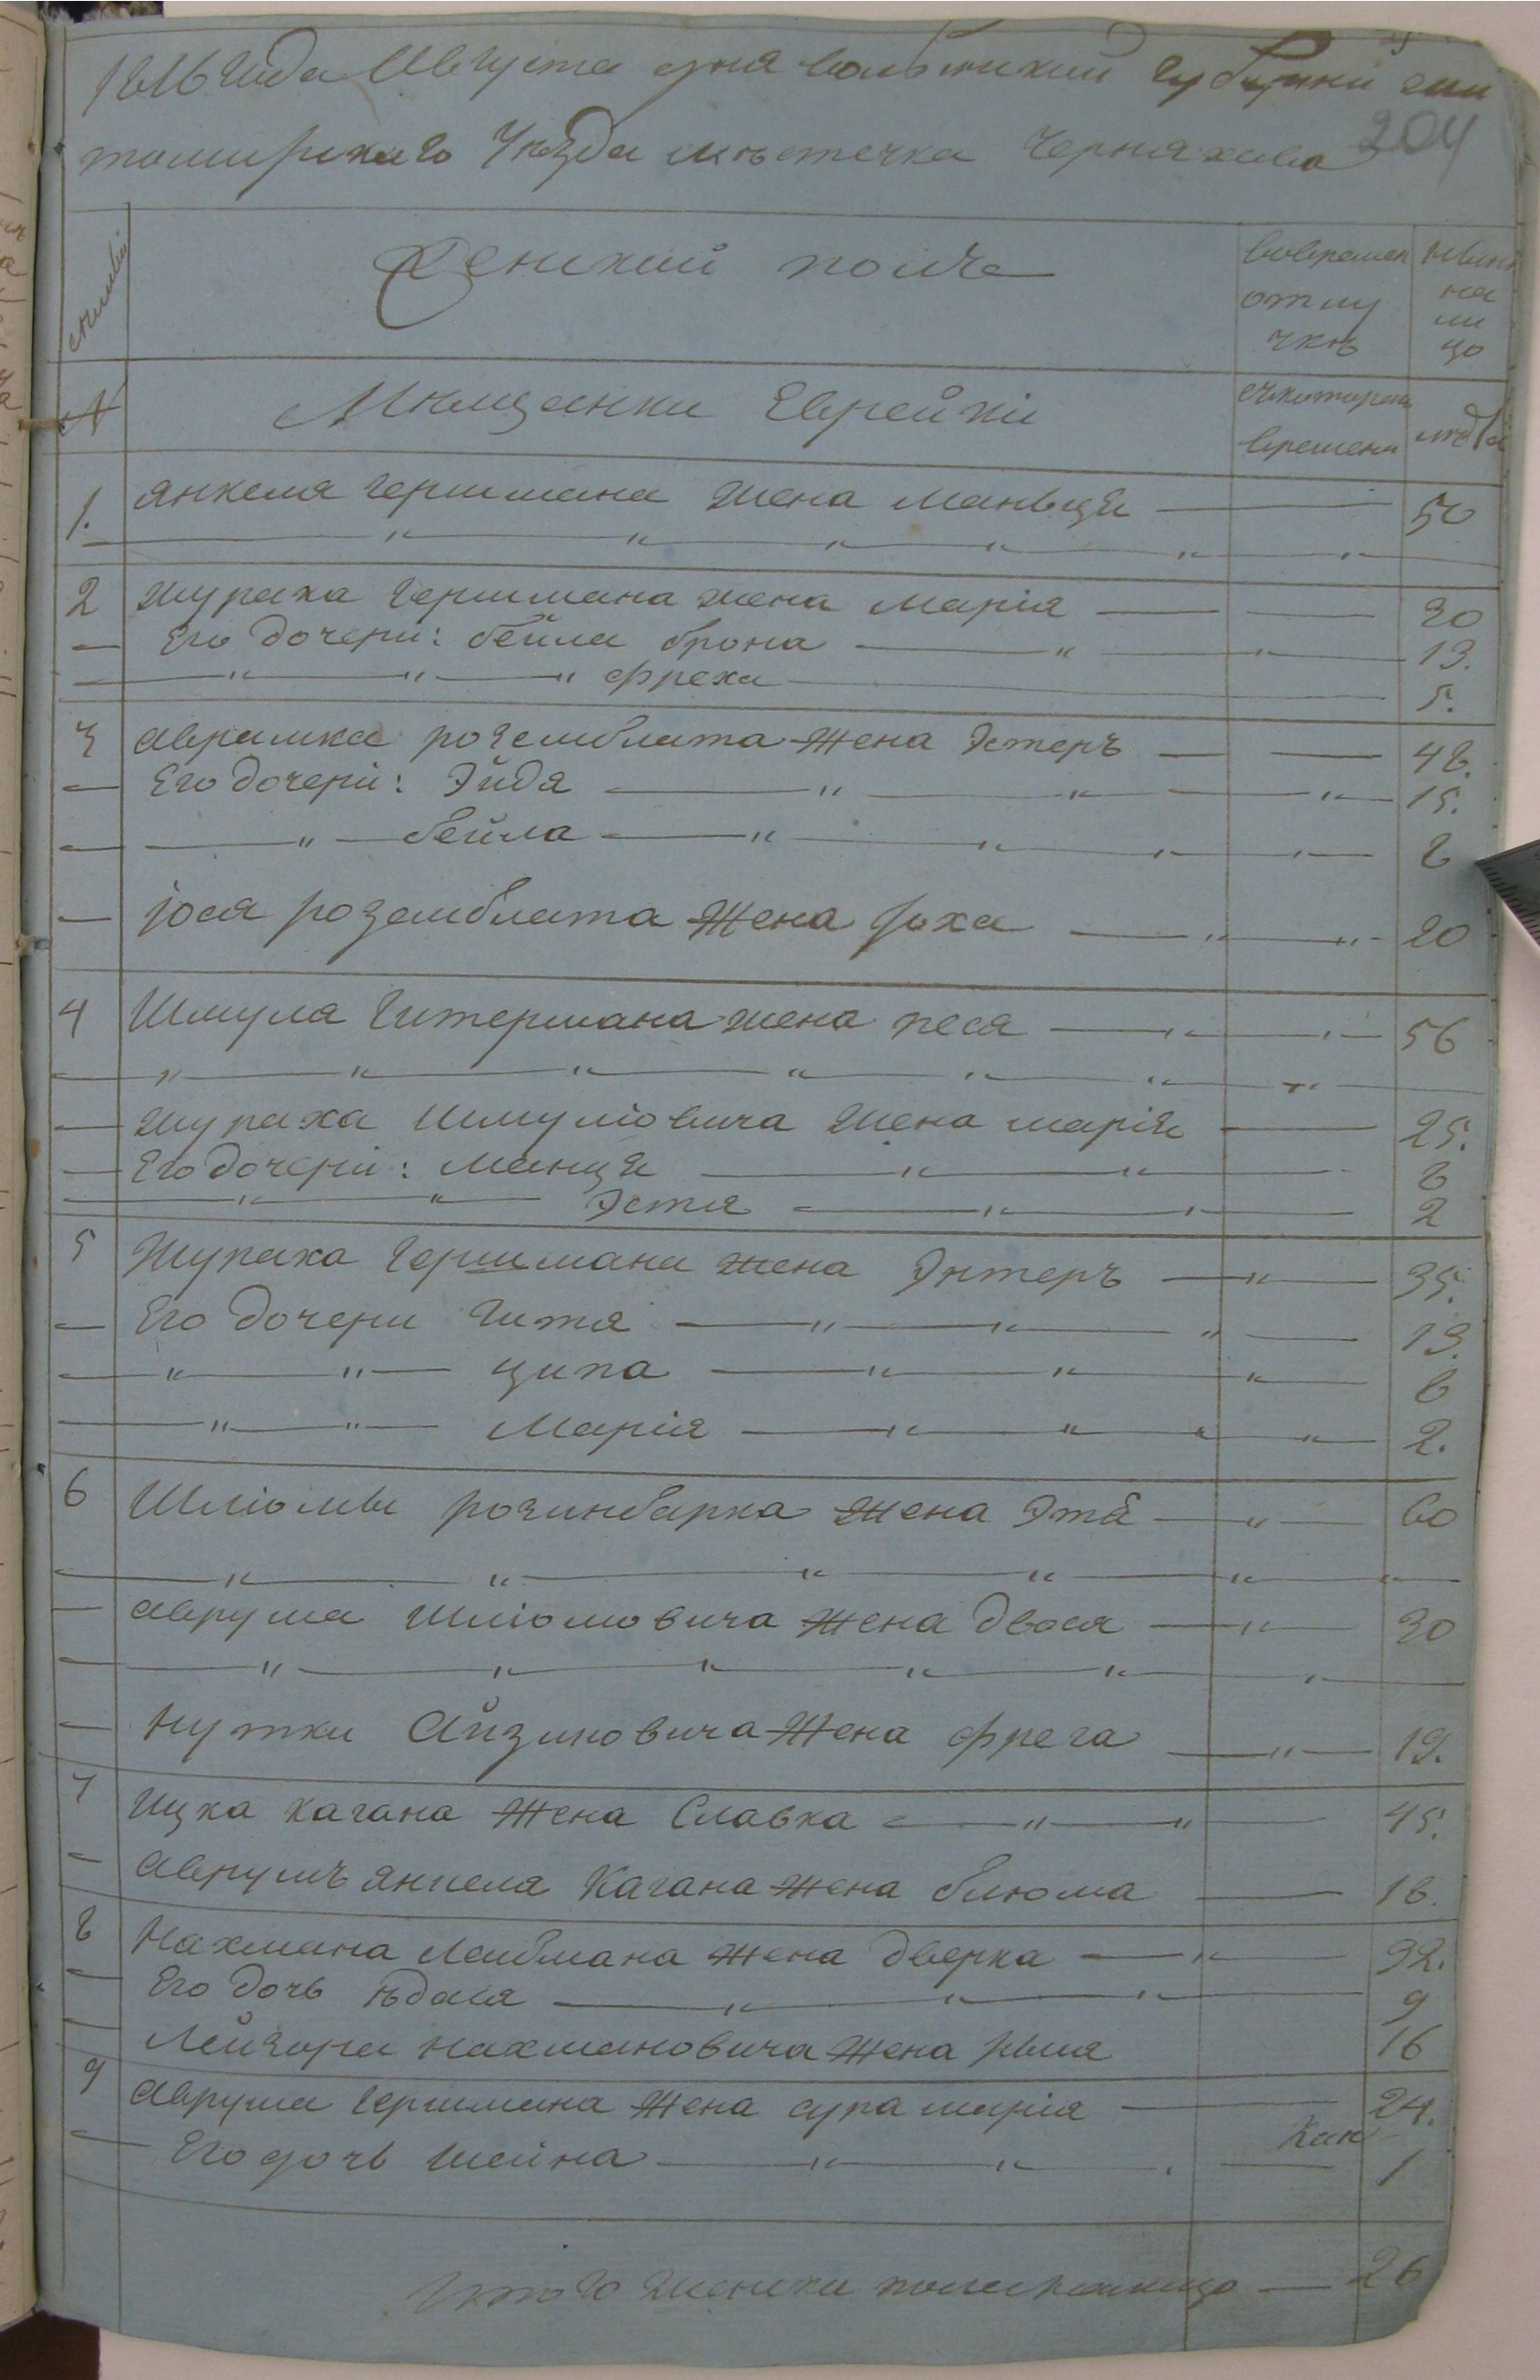 1816 года Августа дня волынскии губернии жи
томирского уезда местечка Черняхова 204
семьи
Женский полъ
вовремен отлу чкѣ
нынѣ на ли цо
№
Мѣщанки Еврейкі
скоторого времени
лѣта
1. Янкеля Гершмана жена Маньця — 50
2 Шураха Гершмана жена Марія — 30
— Его дочери: бейла брона — 13.
— " — " — " фреха — 5.
3 Аврамка роземблата жена Эстеръ — 48.
— Его дочери: Эйдя — " — 15.
— " — бейла — " — 8
— Іося роземблата жена фоха — 20
4 Шмуля Гитермана жена песя — 56
— Шураха Шмуліовича жена марія — 25.
— Его дочери: манця — 8
— " — " Эстя — 2
5 Шураха Гершмана жена Энтеръ — 35.
— Его дочери Гитя — 13.
— " — " — ципа — 8
— " — " — Марія — 2.
6 Шліомы розинбарка жена Этя — 60
— Аврума Шліомовича жена двося — 30
— Нутки Айзиковича жена фрега — 19.
7 Ицка кагана жена Славка — 45.
— Аврумъ янкеля Кагана жена блюма — 18.
8 Нахмана Лейбмана жена дверка — 32.
— Его дочь ѣдася — 9
— Лейзора нахмановича жена рыля 16
9 Аврума Гершмана жена сура марія — 24.
— Его дочь шейна — 1
Итого женска пола налицо — 26